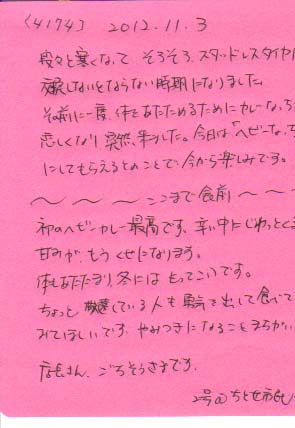 (4174) 2012.11.3
段々と寒くなって そろそろ、スタッドレスタイヤに
交換しないとならない時期になりました。
その前に一度、体をあたためるためにカレーなっち
恋しくなり、突然、来ました。今日は「ヘビーな、ち
にしてもらえるとのことで、今から楽しみです。
〜〜〜ここまで食前〜〜
初のヘビーカレー最高です。辛い中にじわっとくる
甘みが、もうくせになります。
体もあたたまり、冬にはもってこいです。
ちょっと 敬遠している人も勇気を出して食べて
みてほしいです。やみつきになることまちがい
店長さん、ごちそうさまです。
2号@ちとせ市民